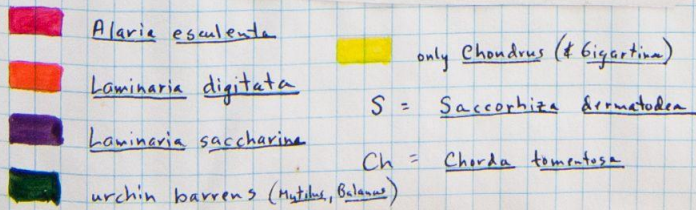 Alaria esculenta
Laminaria digitata
Laminaria saccharina
urchin barrens (Mytilus, Balanus)
only Chondrus (& Gigartina)
S = Saccorhiza dermatodea
Ch = Chorda tomentosa